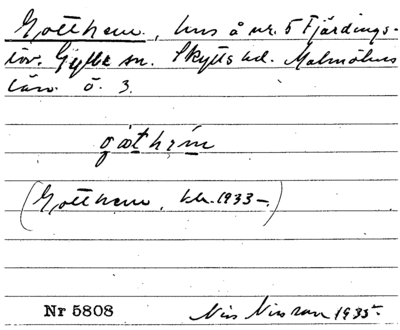 Gotthem, hus å nr. 5 Fjärdings-
löv. Gylle sn. Skytts hd. Malmöhus
län. ö. 3.
gåthęm
(Gotthem, kh. 1933-.)
Nr 5808
Nils Nilsson 1935